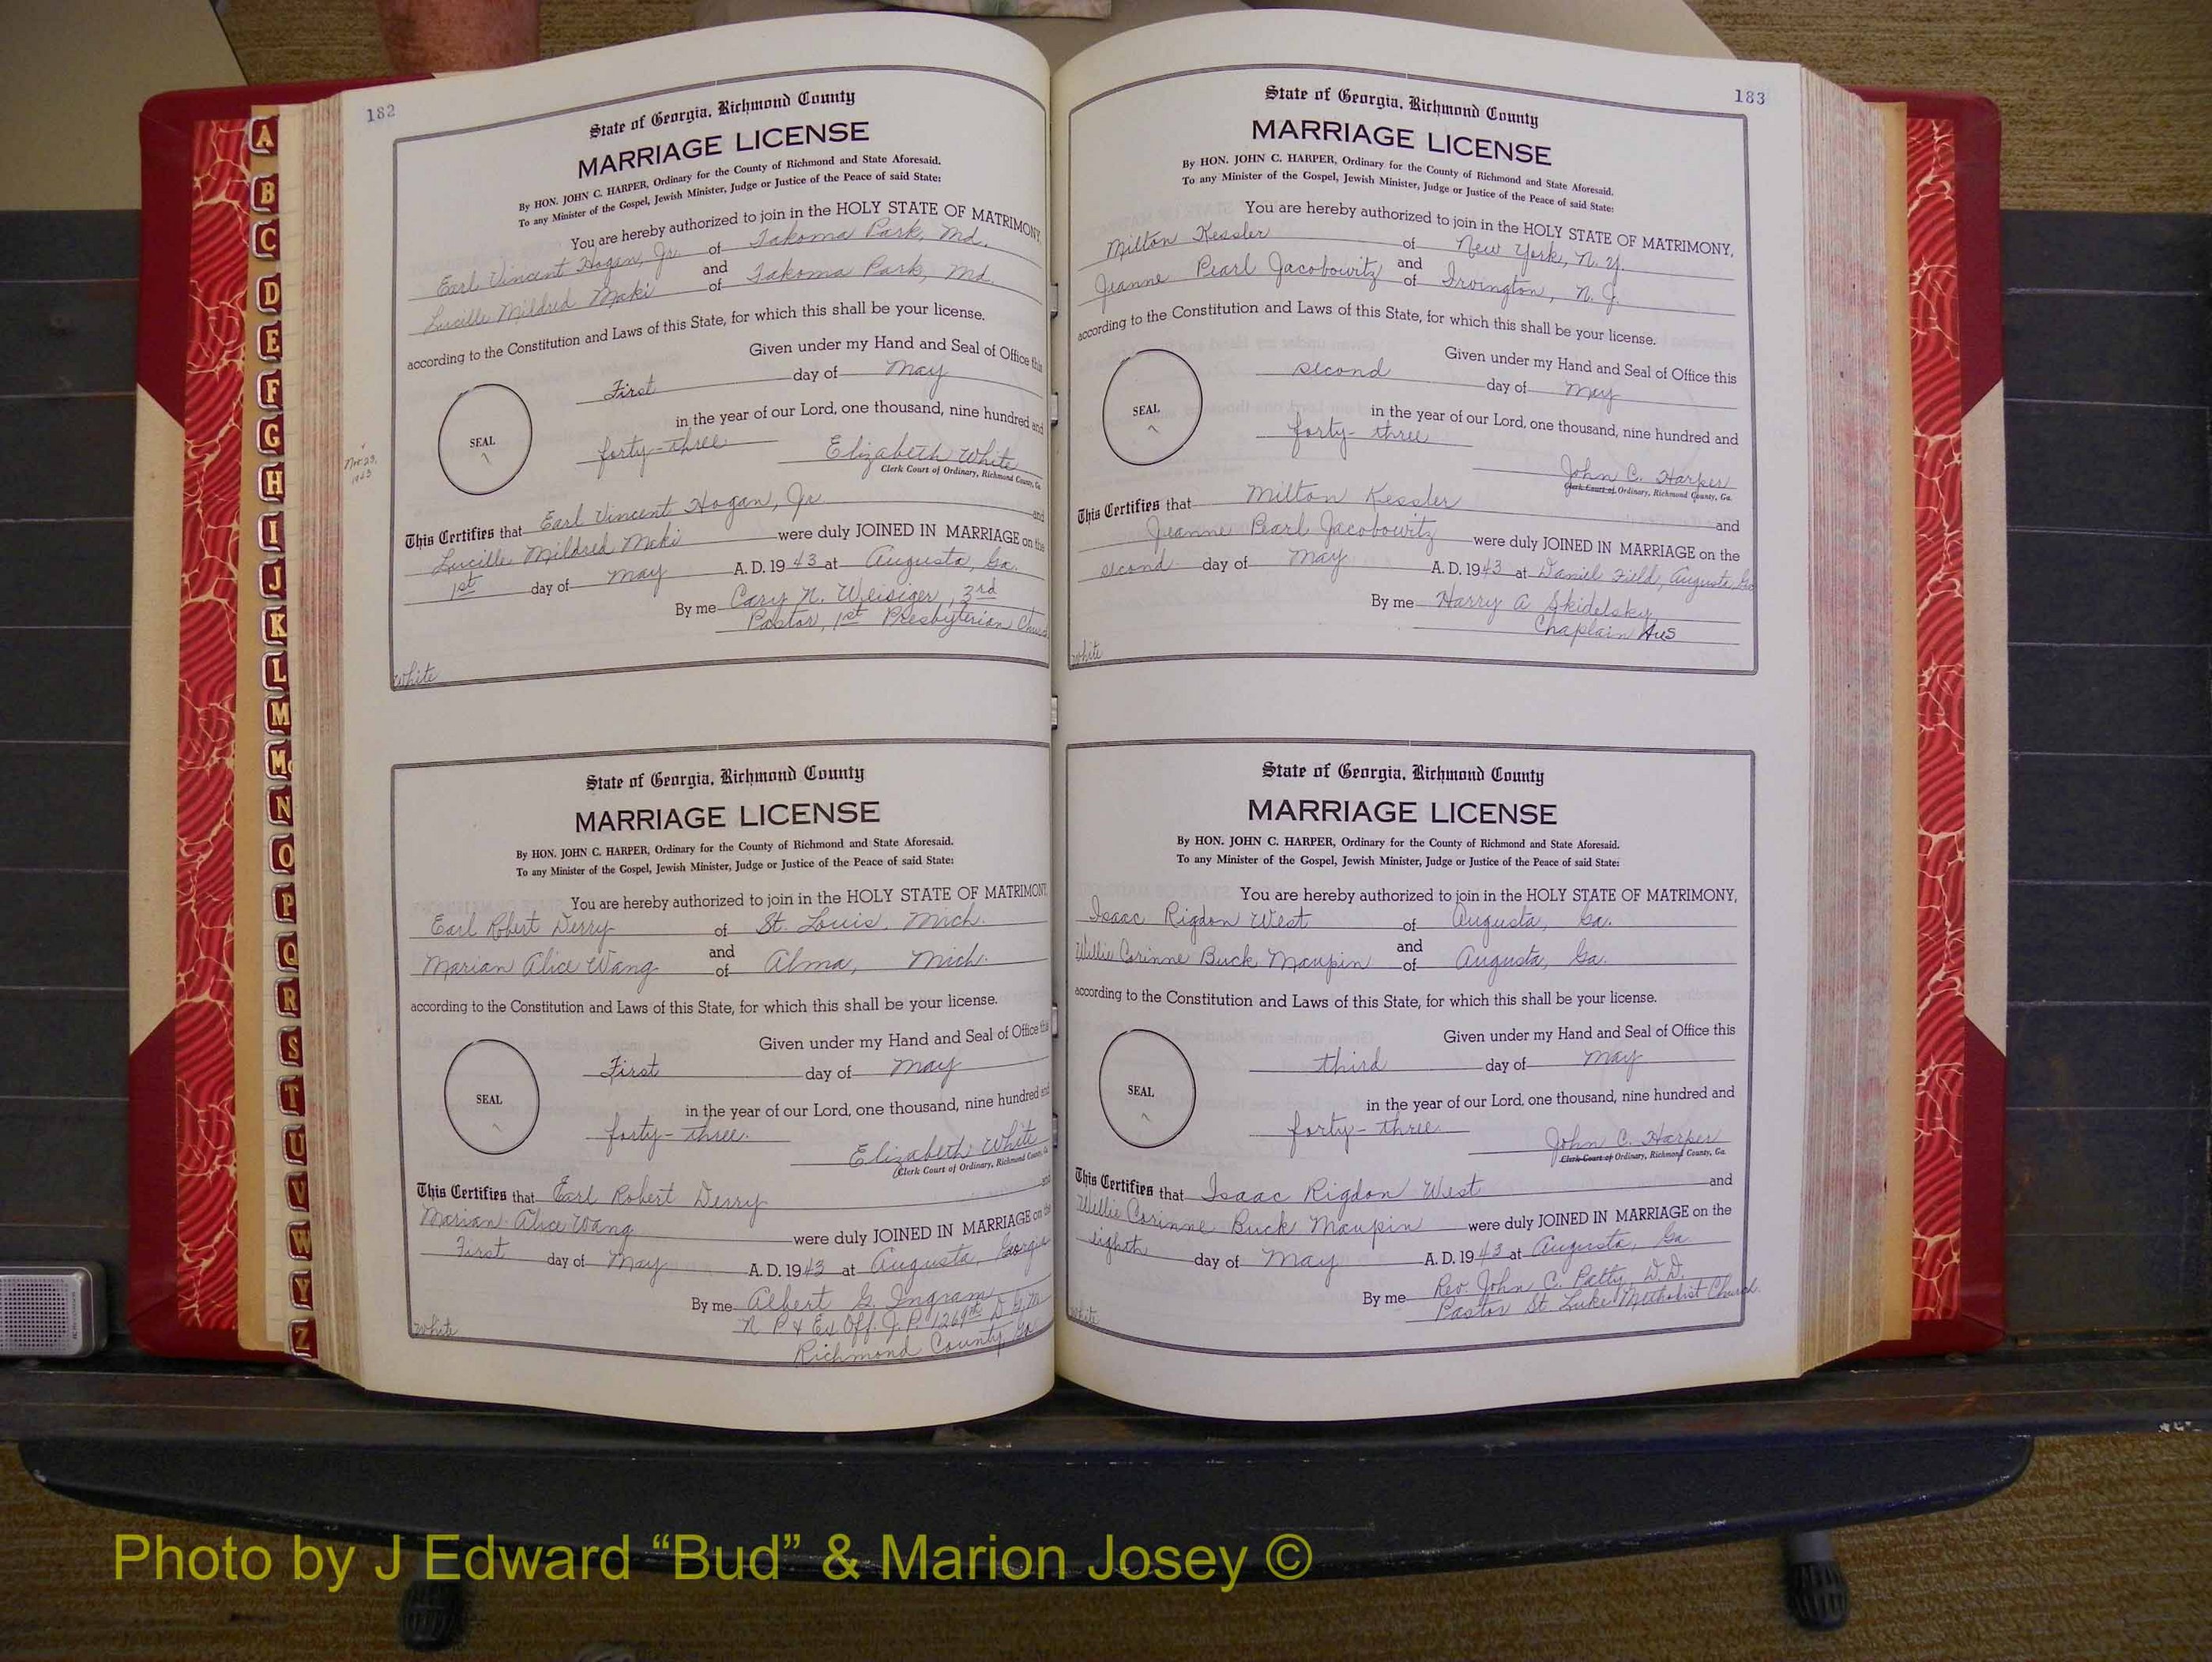 182
State of Georgia, Richmond County
MARRIAGE LICENSE
By HON. JOHN C. HARPER, Ordinary for the County of Richmond and State Aforesaid.
To any Minister of the Gospel, Jewish Minister, Judge or Justice of the Peace of said State:
You are hereby authorized to join in the HOLY STATE OF MATRIMONY,
Earl Vincent Hogan, Jr. of Takoma Park, Md.
and
Lucille Mildred Maki of Takoma Park, Md.
according to the Constitution and Laws of this State, for which this shall be your license.
Given under my Hand and Seal of Office this
First day of May
in the year of our Lord, one thousand, nine hundred and
SEAL
forty-three Elizabeth White
Clerk Court of Ordinary, Richmond County, Ga.
This Certifies that Earl Vincent Hogan, Jr. and
Lucille Mildred Maki were duly JOINED IN MARRIAGE on the
1st day of May A. D. 1943 at Augusta, Ga.
By me Cary N. Weisiger, 3rd
Pastor, 1st Presbyterian Church
White
State of Georgia, Richmond County
MARRIAGE LICENSE
By HON. JOHN C. HARPER, Ordinary for the County of Richmond and State Aforesaid.
To any Minister of the Gospel, Jewish Minister, Judge or Justice of the Peace of said State:
You are hereby authorized to join in the HOLY STATE OF MATRIMONY,
Earl Robert Derry of St. Louis, Mich.
and
Marian Alice Wang of Alma, Mich.
according to the Constitution and Laws of this State, for which this shall be your license.
Given under my Hand and Seal of Office this
First day of May
in the year of our Lord, one thousand, nine hundred and
SEAL
forty-three. Elizabeth White
Clerk Court of Ordinary, Richmond County, Ga.
This Certifies that Earl Robert Derry and
Marian Alice Wang were duly JOINED IN MARRIAGE on the
First day of May A. D. 1943 at Augusta, Georgia
By me Albert G. Ingram
N P & Ex Off. J. P. 1269th D G. M.
Richmond County Ga
White
183
State of Georgia, Richmond County
MARRIAGE LICENSE
By HON. JOHN C. HARPER, Ordinary for the County of Richmond and State Aforesaid.
To any Minister of the Gospel, Jewish Minister, Judge or Justice of the Peace of said State:
You are hereby authorized to join in the HOLY STATE OF MATRIMONY,
Milton Kessler of New York, N. Y.
and
Jeanne Pearl Jacobowitz of Irvington, N. J.
according to the Constitution and Laws of this State, for which this shall be your license.
Given under my Hand and Seal of Office this
second day of May
in the year of our Lord, one thousand, nine hundred and
SEAL
forty-three
John C. Harper
Clerk Court of Ordinary, Richmond County, Ga.
This Certifies that Milton Kessler and
Jeanne Pearl Jacobowitz were duly JOINED IN MARRIAGE on the
second day of May A. D. 1943 at Daniel Field, Augusta, Ga
By me Harry A Skidelsky
Chaplain AUS
White
State of Georgia, Richmond County
MARRIAGE LICENSE
By HON. JOHN C. HARPER, Ordinary for the County of Richmond and State Aforesaid.
To any Minister of the Gospel, Jewish Minister, Judge or Justice of the Peace of said State:
You are hereby authorized to join in the HOLY STATE OF MATRIMONY,
Isaac Rigdon West of Augusta, Ga.
and
Willie Corinne Buck Maupin of Augusta, Ga.
according to the Constitution and Laws of this State, for which this shall be your license.
Given under my Hand and Seal of Office this
third day of May
in the year of our Lord, one thousand, nine hundred and
SEAL
forty-three
John C. Harper
Clerk Court of Ordinary, Richmond County, Ga.
This Certifies that Isaac Rigdon West and
Willie Corinne Buck Maupin were duly JOINED IN MARRIAGE on the
eighth day of May A. D. 1943 at Augusta, Ga
By me Rev. John C. Patty, D.D.
Pastor St. Luke Methodist Church.
White
A
B
C
D
E
F
G
H
I
J
K
L
M
Mc
N
O
P
Q
R
S
T
U
V
W
Y
Z
Photo by J Edward “Bud” & Marion Josey ©